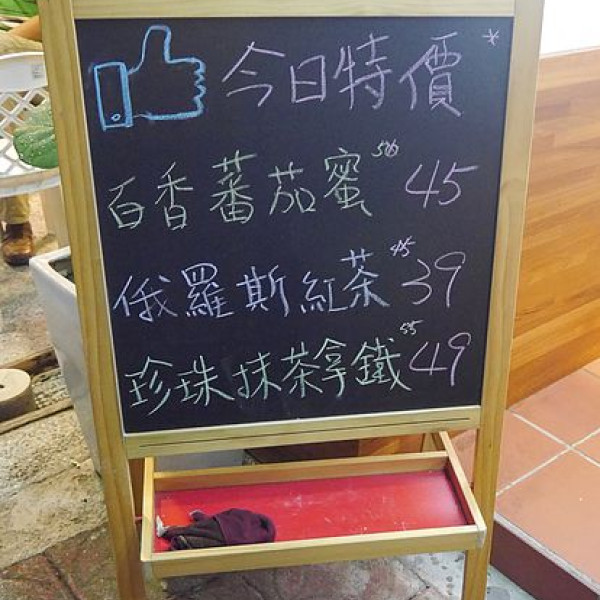 今日特價
百香蕃茄蜜 50 45
俄羅斯紅茶 45 39
珍珠抹茶拿鐵 55 49